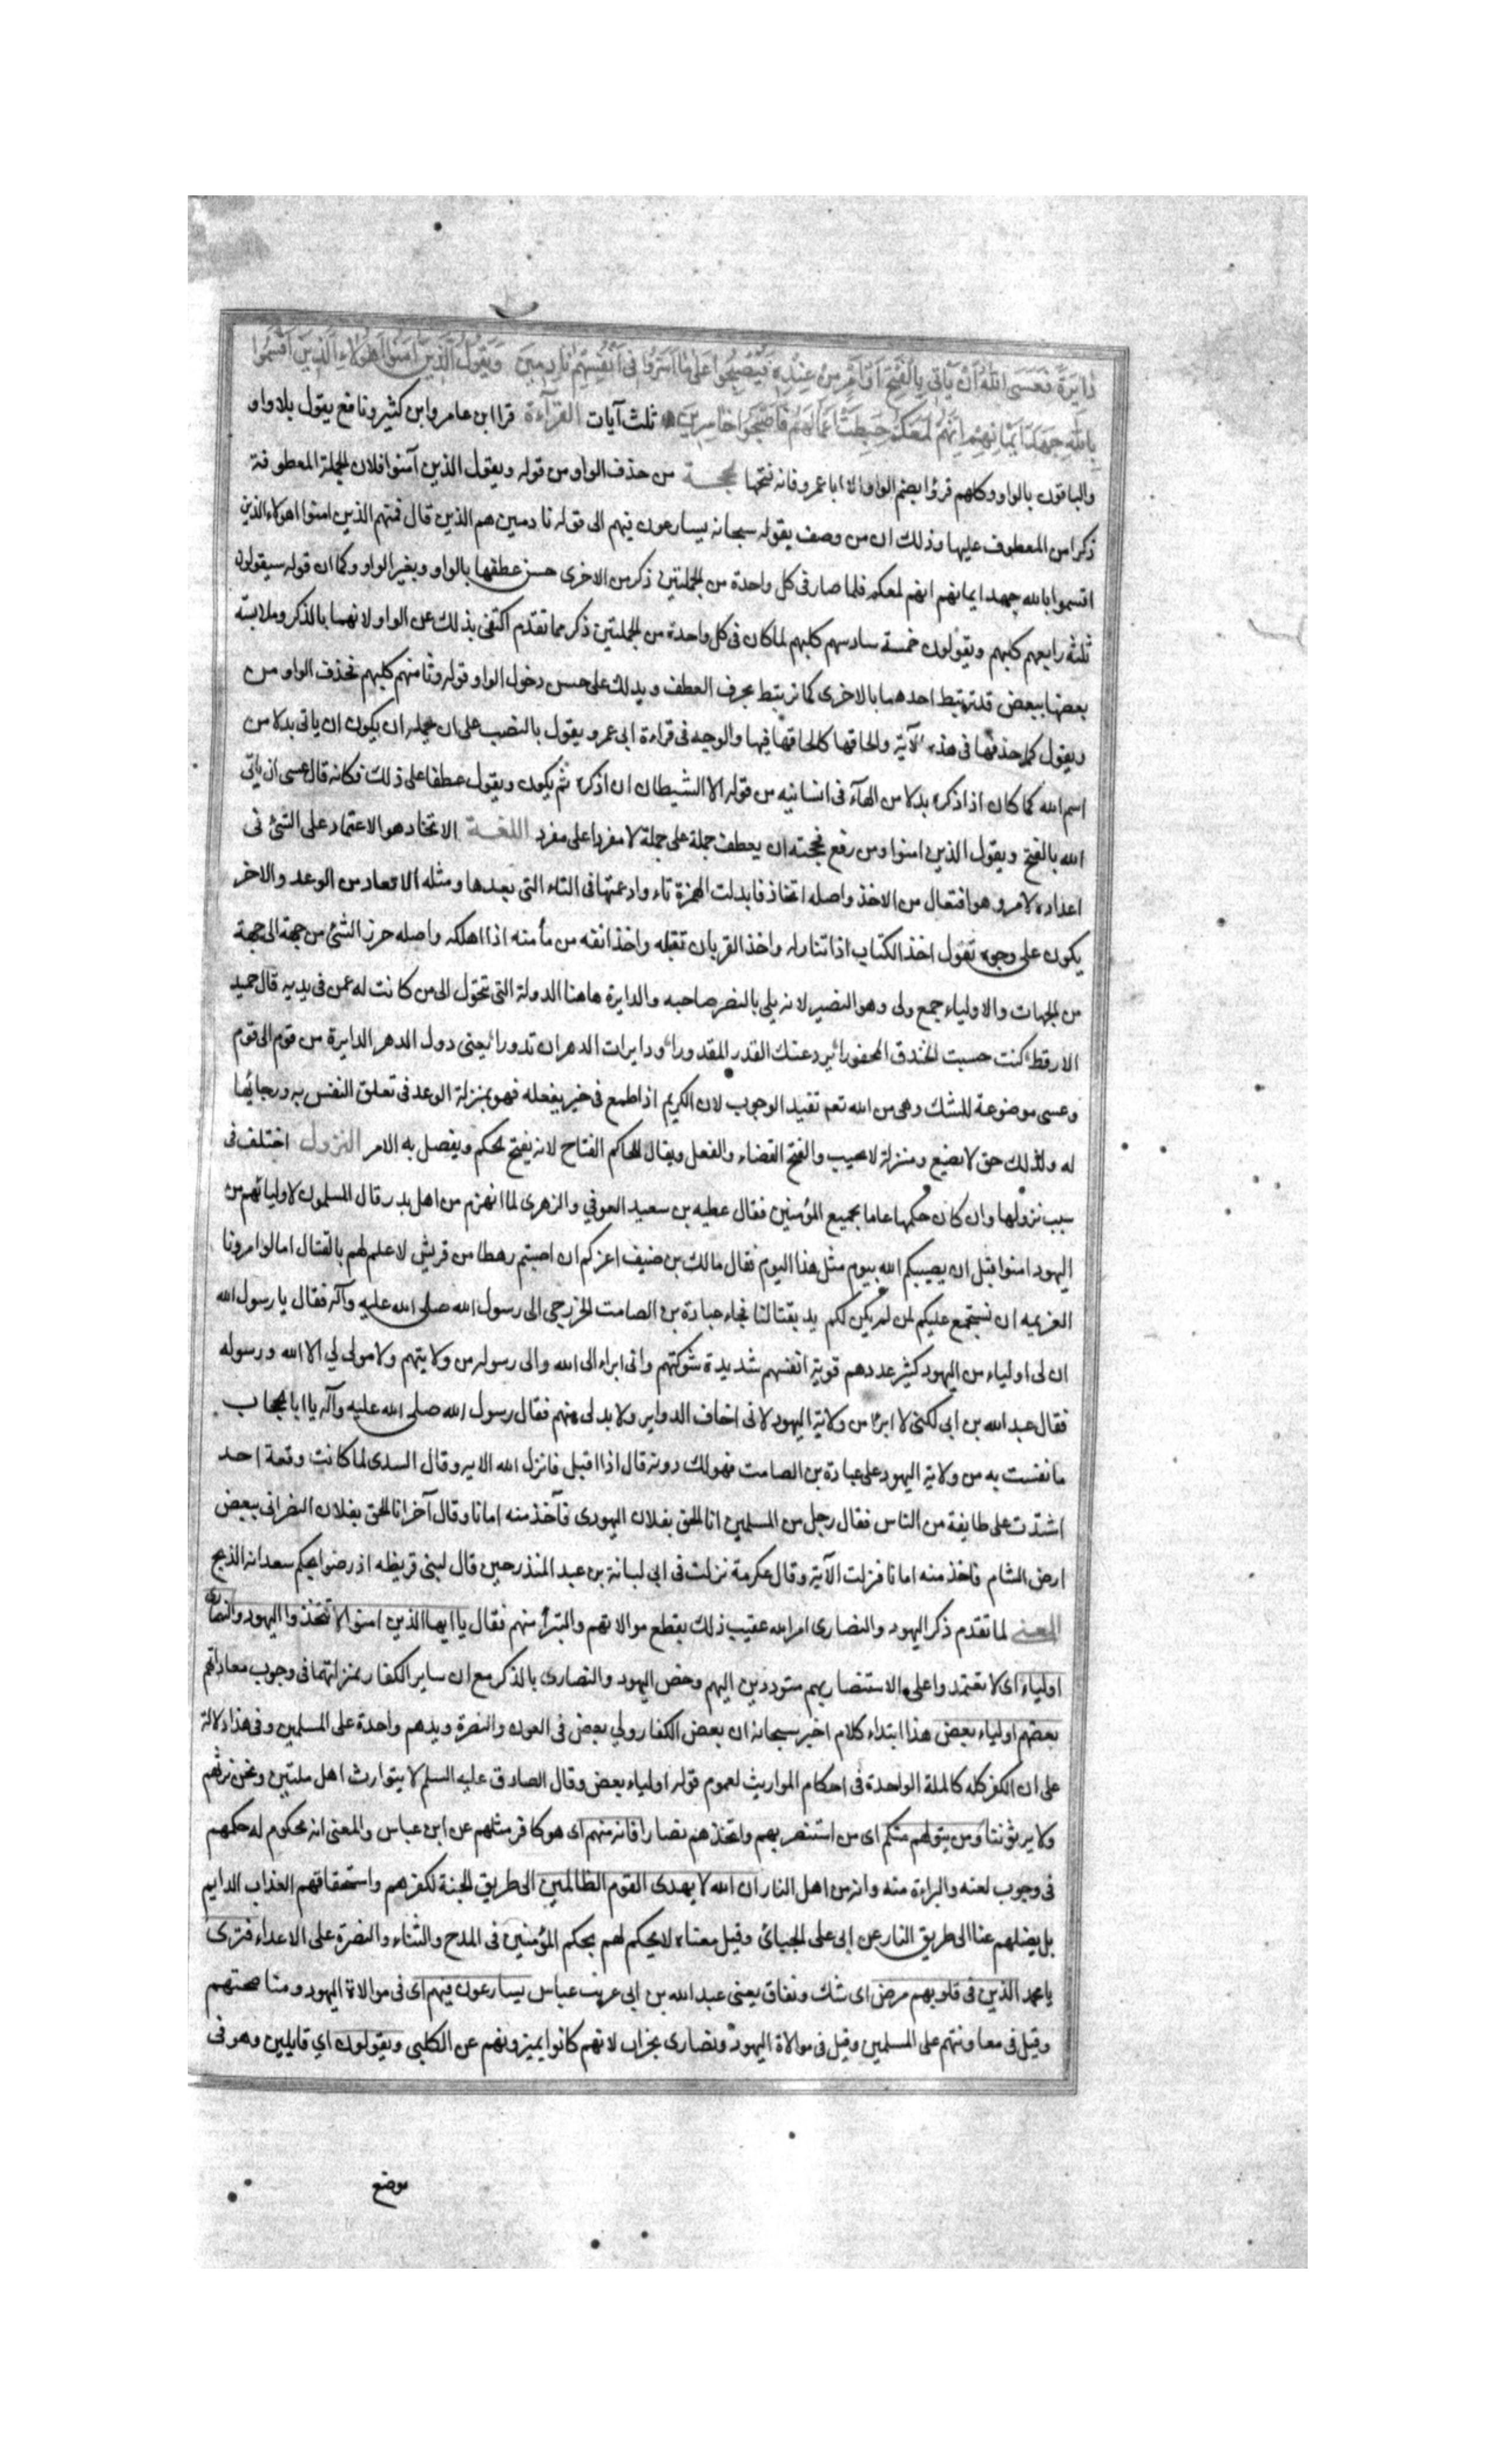 دَايرَةٌ فَعَسَى اللهُ اَنْ يَاْتِيَ بِالْفَتْحِ اَوْ اَمْرٍ مِنْ عِنْدِهِ فَيُصْبِحُوا عَلَى مَا اَسَرُّوا فِى اَنْفُسِهِمْ نَادِمِينَ وَيَقُولُ الَّذِينَ آمَنُوا اَهَؤُلاءِ الَّذِينَ اَقْسَمُوا
بِاللهِ جَهْدَ اَيْمَانِهِمْ اِنَّهُمْ لَمَعَكُمْ حَبِطَتْ اَعْمَالُهُمْ فَاَصْبَحُوا خَاسِرِينَ ثلث آيات القرآءة قرا ابن عامر وابن كثير ونافع يقول بلا واو
والباقون بالواو وكلهم قرؤا بضم الواو الا ابا عمرو فانه فتحها الحجة من حذف الواو من قوله ويقول الذين آمنوا فلان الجملة المعطوفة
ذكرا من المعطوف عليها وذلك ان من وصف بقوله سبحانه يسارعون فيهم الى قوله نادمين هم الذين قال فيهم الذين امنوا اهولاء الذين
اقسموا بالله جهد ايمانهم انهم لمعكم فلما صار فى كل واحدة من الجملتين ذكر من الاخرى حسن عطفها بالواو وبغير الواو وكما ان قوله سيقولون
ثلثة رابعهم كلبهم ويقولون خمسة سادسهم كلبهم لما كان فى كل واحدة من الجملتين ذكر مما تقدم اكتفى بذلك عن الواو لانهما بالذكر وملابسة
بعضها ببعض قد ترتبط احدهما بالاخرى كما ترتبط بحرف العطف ويدلك على حسن دخول الواو قوله وثامنهم كلبهم فحذف الواو من
ويقول كما حذفها فى هذه الآية والحاقها كالحاقها فيها والوجه فى قراءة ابى عمرو يقول بالنصب على ان يحمله ان يكون ان ياتى بدلا من
اسم الله كما كان اذ اذكره بدلا من الهآء فى انسانيه من قوله الا الشيطان ان اذكره ثم يكون ويقول عطفا على ذلك فكانه قال عسى ان ياتى
الله بالفتح ويقول الذين امنوا ومن رفع فحجته ان يعطف جملة على جملة لا مفردا على مفرد اللغة الاتخاد هو الاعتماد على الشئ فى
اعداده لامر وهو افتعال من الاخذ واصله ائتخاذ فابدلت الهمزة تاء وادغمتها فى التاء التى بعدها ومثله الاتعاد من الوعد والاخر
يكون على وجوه تقول اخذ الكتاب اذا تناوله واخذ القربان تقبله واخذ الله من مأمنه اذا اهلكه واصله حرز الشئ من جهة الى جهة
من الجهات والاولياء جمع ولى وهو النصير لانه يلى بالنصر صاحبه والدايرة هاهنا الدولة التى تتحول الى من كانت له عمن فى يديه قال حميد
الارقط كنت حسبت الخندق المحفورا يرد عنك القدر المقدورا ودايرات الدهر ان تدورا يعنى دول الدهر الدايرة من قوم الى قوم
وعسى موضوعة للشك وهى من الله تعم تفيد الوجوب لان الكريم اذا طمع فى خير يفعله فهو بمنزلة الوعد فى تعلق النفس به ورجائها
له ولذلك حق لا يضيع ومنزلة لا يخيب والفتح القضاء والفصل ويقال للحاكم الفتاح لانه يفتح الحكم ويفصل به الامر النزول اختلف فى
سبب نزولها وان كان حكمها عاما لجميع المؤمنين فقال عطيه بن سعيد العوفي والزهرى لما انهزم من اهل بدر قال المسلمون لاوليائهم من
اليهود امنوا قبل ان يصيبكم الله بيوم مثل هذا اليوم فقال مالك بن ضيف اعزكم ان اصبتم رهطا من قريش لا علم لهم بالقتال اما لو امرونا
العزيمه ان نستجمع عليكم لمن لم يكن لكم يد بقتالنا فجاء عبادة بن الصامت الخزرجى الى رسول الله صلى الله عليه وآله فقال يا رسول الله
ان لى اولياء من اليهود كثير عددهم قوية انفسهم شديدة شوكتهم وانى ابراء الى الله والى رسوله من ولايتهم ولا مولى لي الا الله ورسوله
فقال عبد الله بن ابى لكنى لا ابرأ من ولاية اليهود لانى اخاف الدواير ولا بد لى منهم فقال رسول الله صلى الله عليه وآله يا ابا الحجاب
ما نفست به من ولاية اليهود على عبادة بن الصامت فهو لك دونه قال اذا اقبل فانزل الله الايه وقال السدى لما كانت وقعة احد
اشتدت على طايفة من الناس فقال رجل من المسلمين انا الحق بفلان اليهودى فآخذ منه امانا وقال آخر انا الحق بفلان النصرانى ببعض
ارض الشام فاخذ منه امانا فنزلت الآية وقال عكرمة نزلت فى ابى لبانة بن عبد المنذر حين قال لبنى قريظه اذ رضوا بحكم سعد انه الذبح
المعنى لما تقدم ذكر اليهود والنصارى امر الله عقيب ذلك بقطع موالاتهم والتبرأ منهم فقال يا ايها الذين امنوا لا تتخذوا اليهود والنصارى
اولياء اى لا تعتمدوا على الاستنصار بهم متوددين اليهم وخص اليهود والنصارى بالذكر مع ان ساير الكفار بمنزلتهما فى وجوب معاداتهم
بعضهم اولياء بعض هذا ابتداء كلام اخبر سبحانه ان بعض الكفار ولي بعض فى العون والنصرة ويدهم واحدة على المسلمين وفى هذا دلالة
على ان الكفر كله كالملة الواحدة فى احكام المواريث لعموم قوله اولياء بعض وقال الصادق عليه السلم لا يتوارث اهل ملتين ونحن نرثهم
ولا يرثوننا ومن يتولهم منكم اى من استنصر بهم واتخذهم نصارا فانه منهم اى هو كافر مثلهم عن ابن عباس والمعنى انه محكوم له حكمهم
فى وجوب لعنه والبراءة منه وانه من اهل النار ان الله لا يهدى القوم الظالمين الى طريق الجنة لكفرهم واستحقاقهم العذاب الدايم
بل يضلهم عنا الى طريق النار عن ابى على الجبائى وقيل معناه لا يحكم لهم بحكم المؤمنين فى المدح والثناء والنصرة على الاعداء فترى
يا محمد الذين فى قلوبهم مرض اى شك ونفاق يعنى عبد الله بن ابى عن ابن عباس يسارعون فيهم اى فى موالاة اليهود ومناصحتهم
وقيل فى معاونتهم على المسلمين وقيل فى موالاة اليهود ونصارى نجران لانهم كانوا يميزونهم عن الكلبى ويقولون اي قايلين وهو فى
موضع